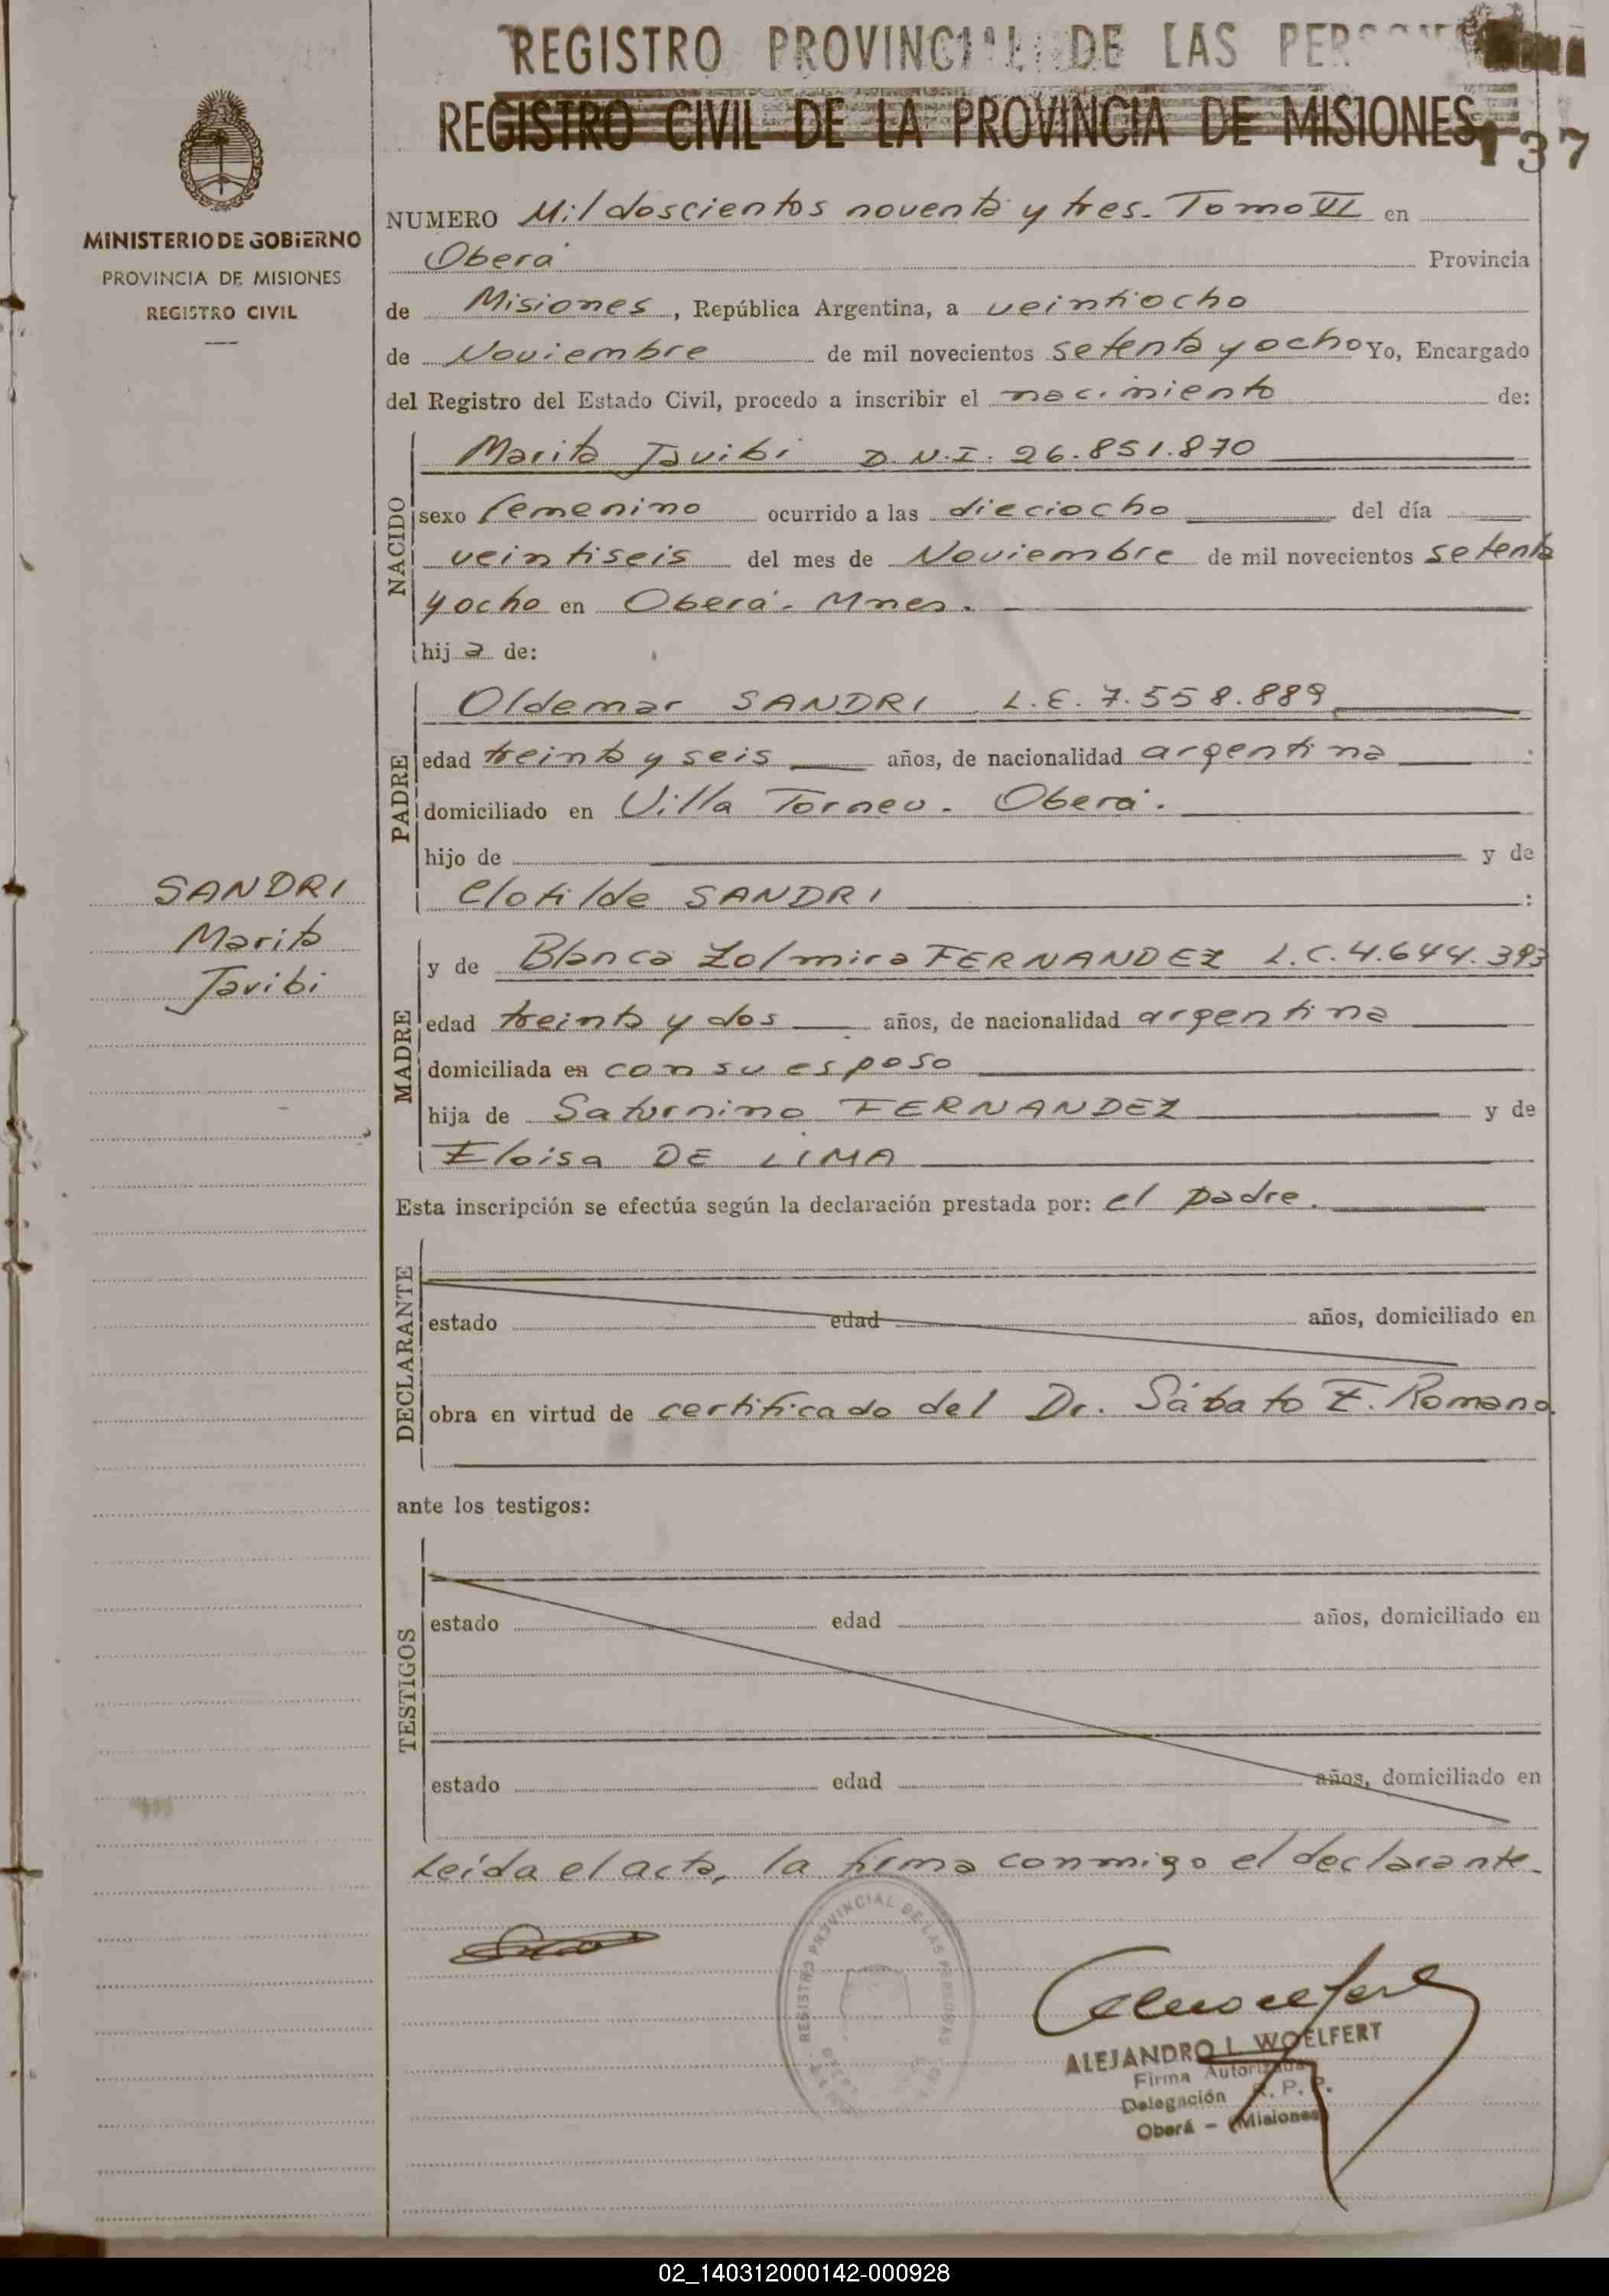 REGISTRO PROVINCIAL DE LAS
REGISTRO CIVIL DE LA PROVINCIA DE MISIONES
137
MINISTERIO DE GOBIERNO
PROVINCIA DE MISIONES
REGISTRO CIVIL
NUMERO Mil doscientos noventa y tres. Tomo VI en
Oberá Provincia
de Misiones, República Argentina, a veintiocho
de Noviembre de mil novecientos setenta y ocho Yo, Encargado
del Registro del Estado Civil, procedo a inscribir el nacimiento de:
NACIDO
Marita Javibi D.N.I. 26.851.870
sexo femenino ocurrido a las dieciocho del día
veintiseis del mes de Noviembre de mil novecientos setenta
y ocho en Oberá. Mnes.
hij a de:
PADRE
Oldemar SANDRI L.E. 7.558.889
edad treinta y seis años, de nacionalidad argentina
domiciliado en Villa Torneu. Oberá.
hijo de y de
Clotilde SANDRI
SANDRI
Marita
Javibi
MADRE
y de Blanca Zolmira FERNANDEZ L.C. 4.644.393
edad treinta y dos años, de nacionalidad argentina
domiciliada en con su esposo
hija de Saturnino FERNANDEZ y de
Eloisa DE LIMA
Esta inscripción se efectúa según la declaración prestada por: el padre.
DECLARANTE
estado edad años, domiciliado en
obra en virtud de certificado del Dr. Sábato F. Romano.
ante los testigos:
TESTIGOS
estado edad años, domiciliado en
estado edad años, domiciliado en
Leída el acta, la firma conmigo el declarante.
REGISTRO PROVINCIAL DE LAS PERSONAS
ALEJANDRO L. WOELFERT
Firma Autorizada
Delegación R. P. P.
Oberá - (Misiones)
02_140312000142-000928